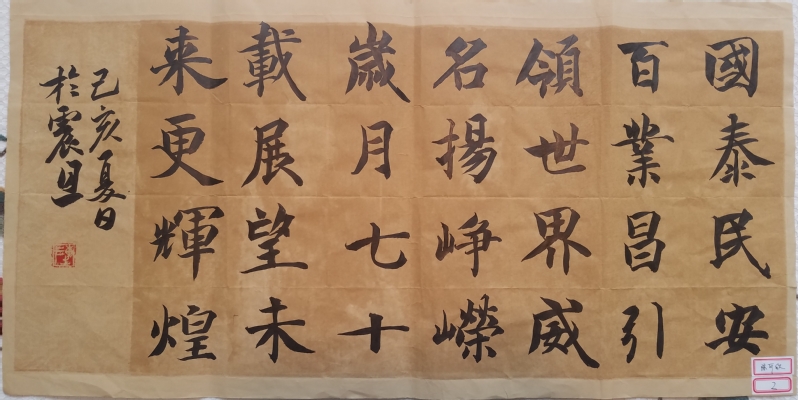 國泰民安
百業昌引
領世界威
名揚崢嶸
歲月七十
載展望未
来更輝煌
己亥夏日
於震旦
2